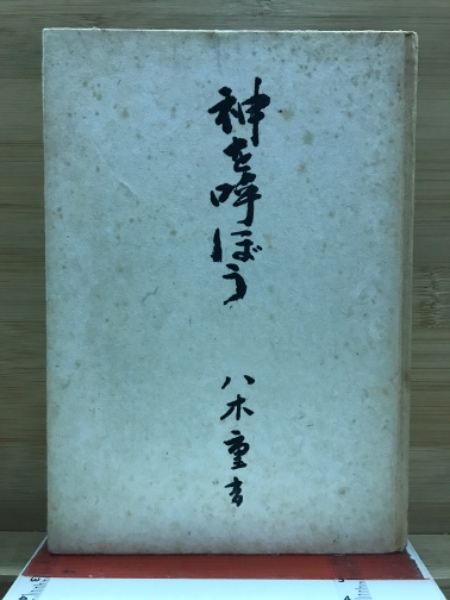 神を呼ぼう
八木重吉